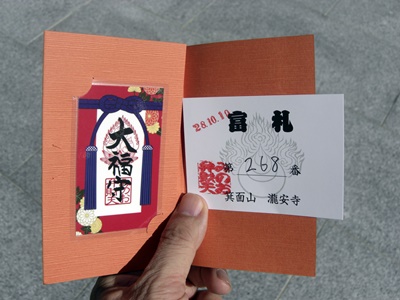 大福守
28.10.10
富札
第 268 番
箕面山 瀧安寺